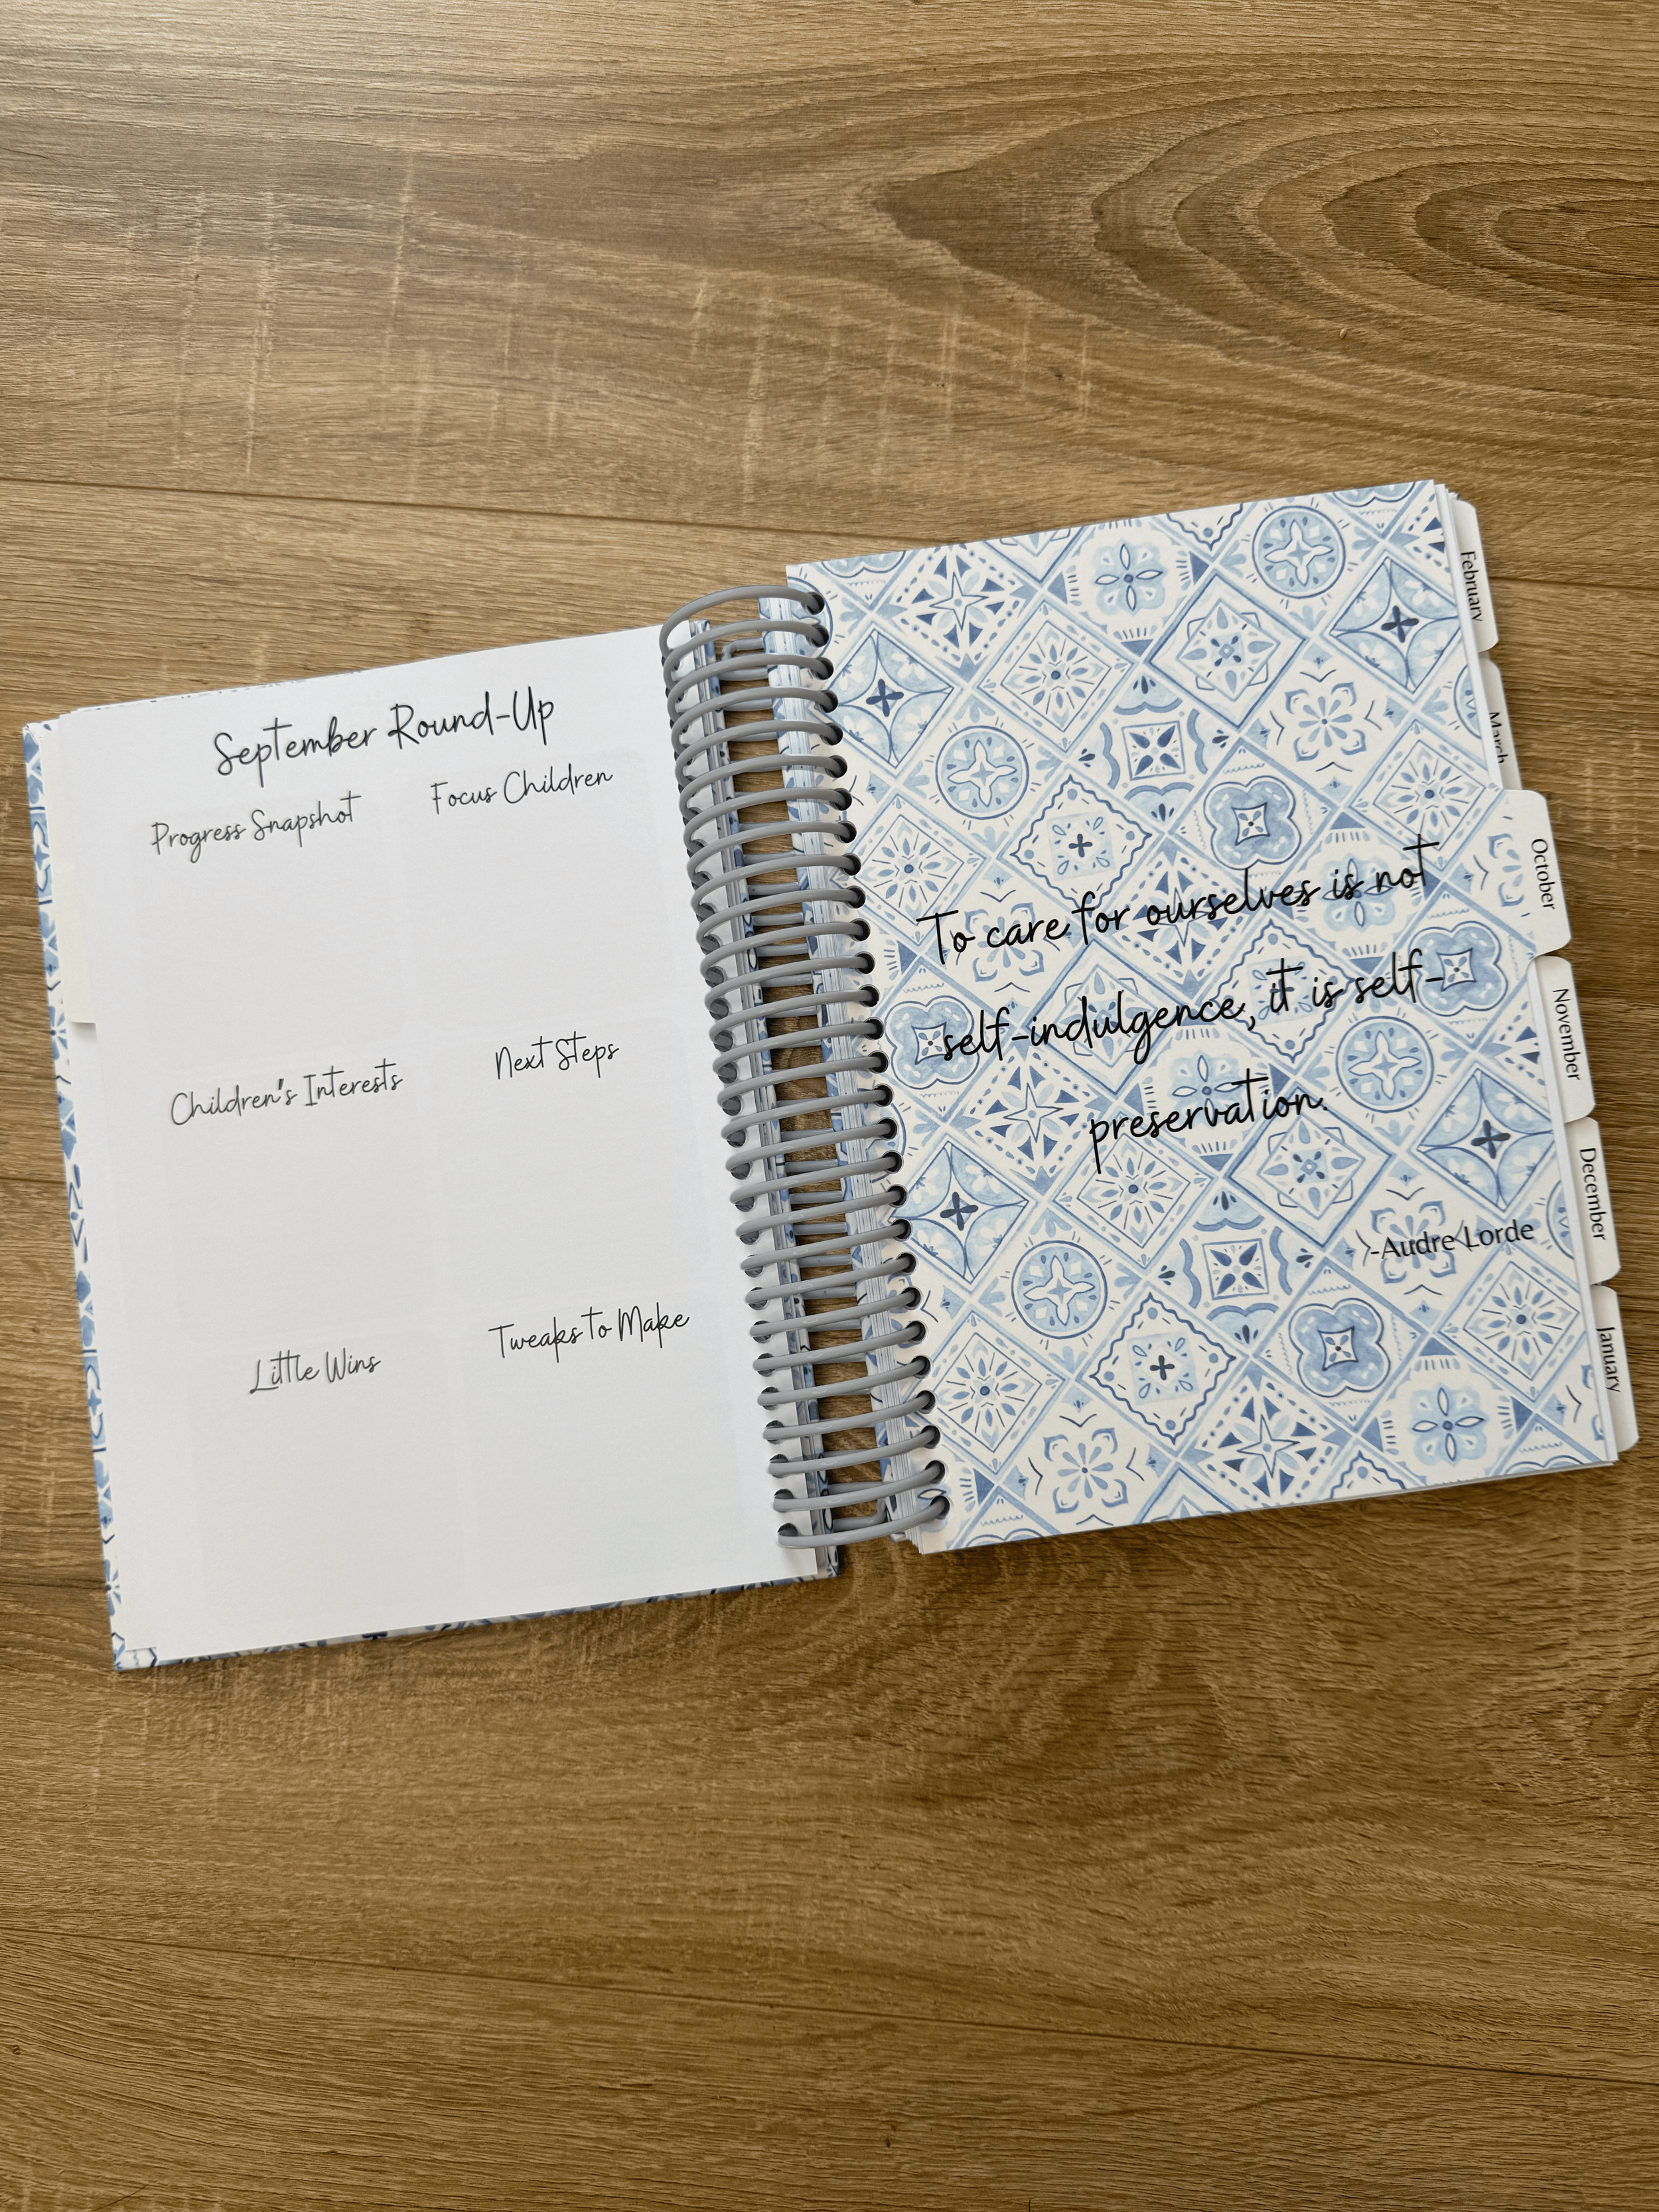 September Round-Up
Progress Snapshot
Focus Children
Children's Interests
Next Steps
Little Wins
Tweaks to Make
To care for ourselves is not
self-indulgence, it is self-
preservation.
-Audre Lorde
February
March
October
November
December
January